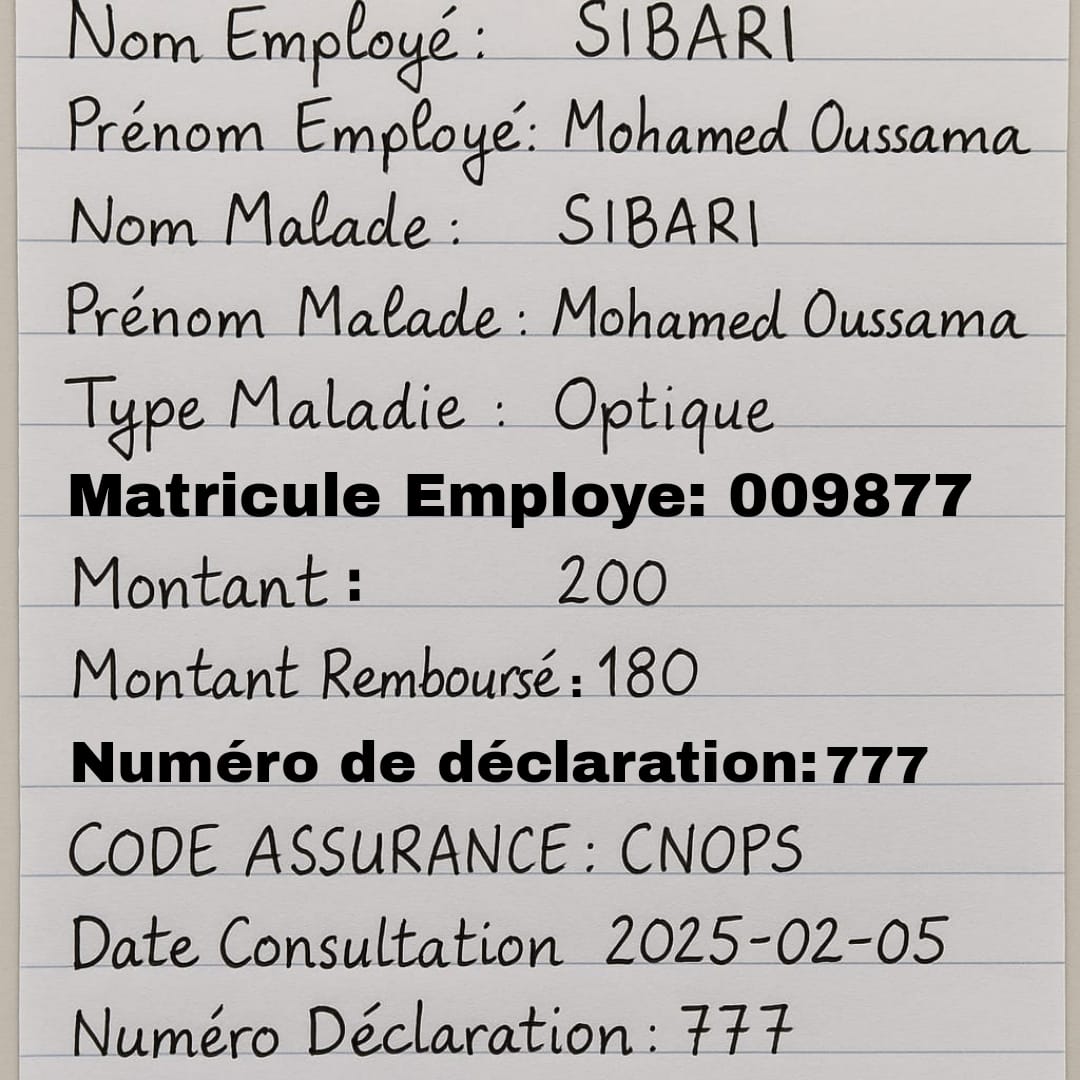 Nom Employé : SIBARI
Prénom Employé : Mohamed Oussama
Nom Malade : SIBARI
Prénom Malade : Mohamed Oussama
Type Maladie : Optique
Matricule Employe: 009877
Montant : 200
Montant Remboursé : 180
Numéro de déclaration: 777
CODE ASSURANCE : CNOPS
Date Consultation 2025-02-05
Numéro Déclaration : 777